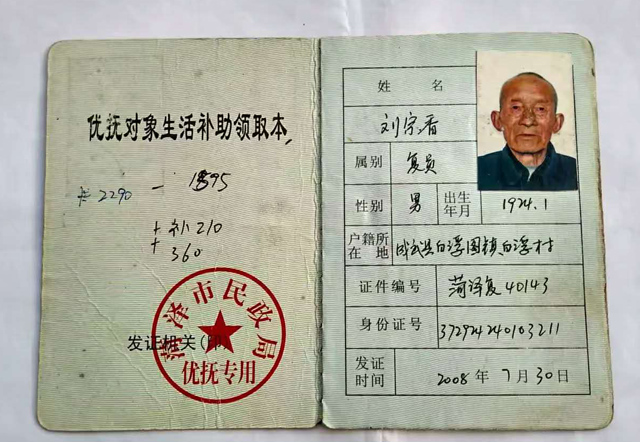 优抚对象生活补助领取本
卡2290 — 1895
+补210
+
360
菏泽市民政局
发证机关(印)
优抚专用
姓 名
刘宗香
属别 复员
性别 男 出生年月 1924.1
户籍所在地 成武县白浮图镇白浮村
证件编号 菏泽复40143
身份证号 372924240103211
发证时间 2008年7月30日